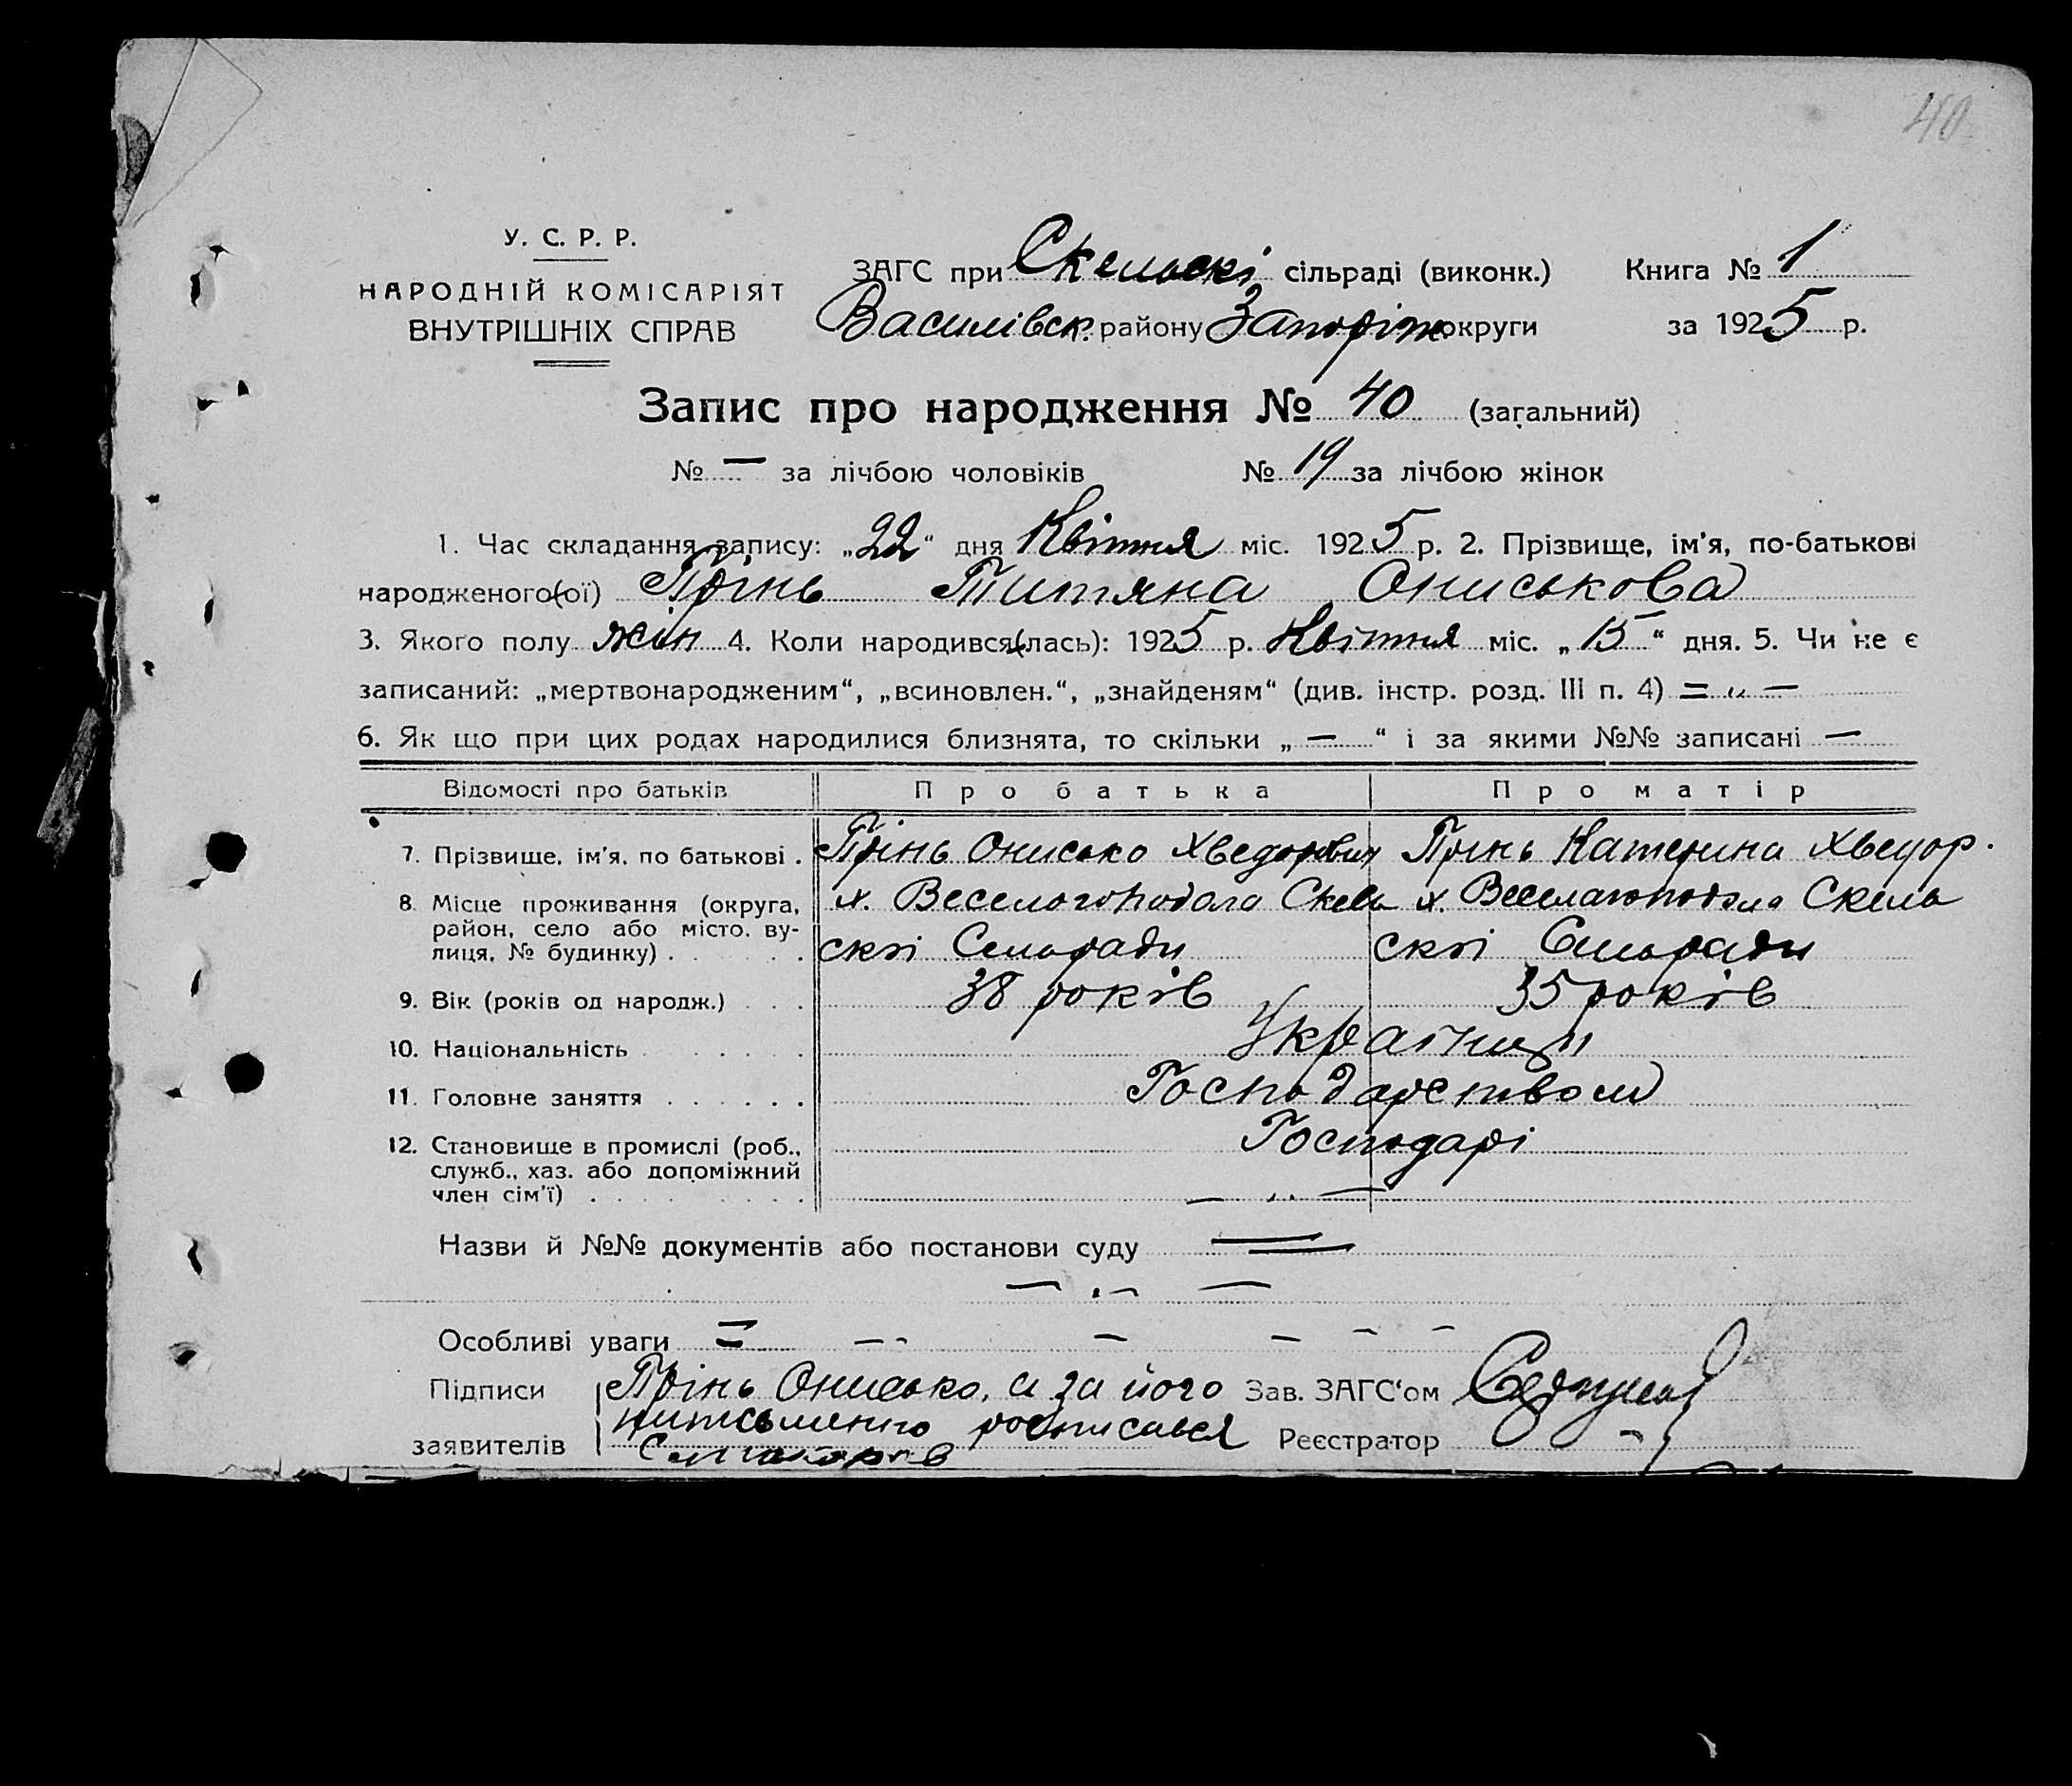 40
У. С. Р. Р.
НАРОДНІЙ КОМІСАРІЯТ
ВНУТРІШНІХ СПРАВ
ЗАГС при Скельскі сільраді (виконк.)
Василівск. району Запоріж округи
Книга № 1
за 1925 р.
Запис про народження № 40 (загальний)
№ — за лічбою чоловіків № 19 за лічбою жінок
1. Час складання запису: „22“ дня Квітня міс. 1925 р. 2. Прізвище, ім'я, по-батькові
народженого(ої) Грінь Титяна Ониськова
3. Якого полу жін 4. Коли народився(лась): 1925 р. Квітня міс. „15“ дня. 5. Чи не є
записаний: „мертвонародженим“, „всиновлен.“, „знайденям“ (див. інстр. розд. III п. 4) = „ —
6. Як що при цих родах народилися близнята, то скільки „ — “ і за якими №№ записані —
Відомості про батьків Про батька Про матір
7. Прізвище, ім'я, по батькові . Грінь Онисько Хведорович Грінь Катерина Хведор.
8. Місце проживання (округа, район, село або місто, вулиця, № будинку) х. Веселого Скель х. Скель
скої Сельради скої Сельради
9. Вік (років од народж.) 38 років 35 років
10. Національність Українці
11. Головне заняття Господарством
12. Становище в промислі (роб., Господарі
служб., хаз. або допоміжний
член сім'ї) — „ —
Назви й №№ документів або постанови суду
Особливі уваги =
Підписи Грінь Онисько, а за його Зав. ЗАГС'ом
заявителів росписався Реєстратор